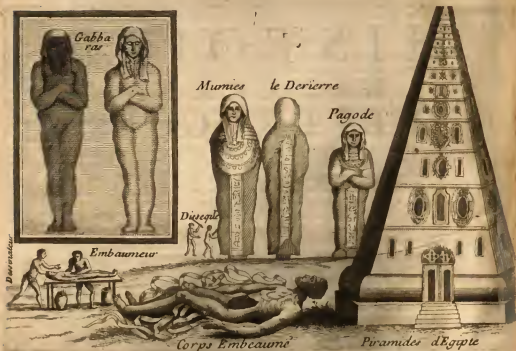 Gabba
ras
Mumies le Derierre
Pagode
Embaumeur
Corps Embeaumé
Piramides d'Egipte